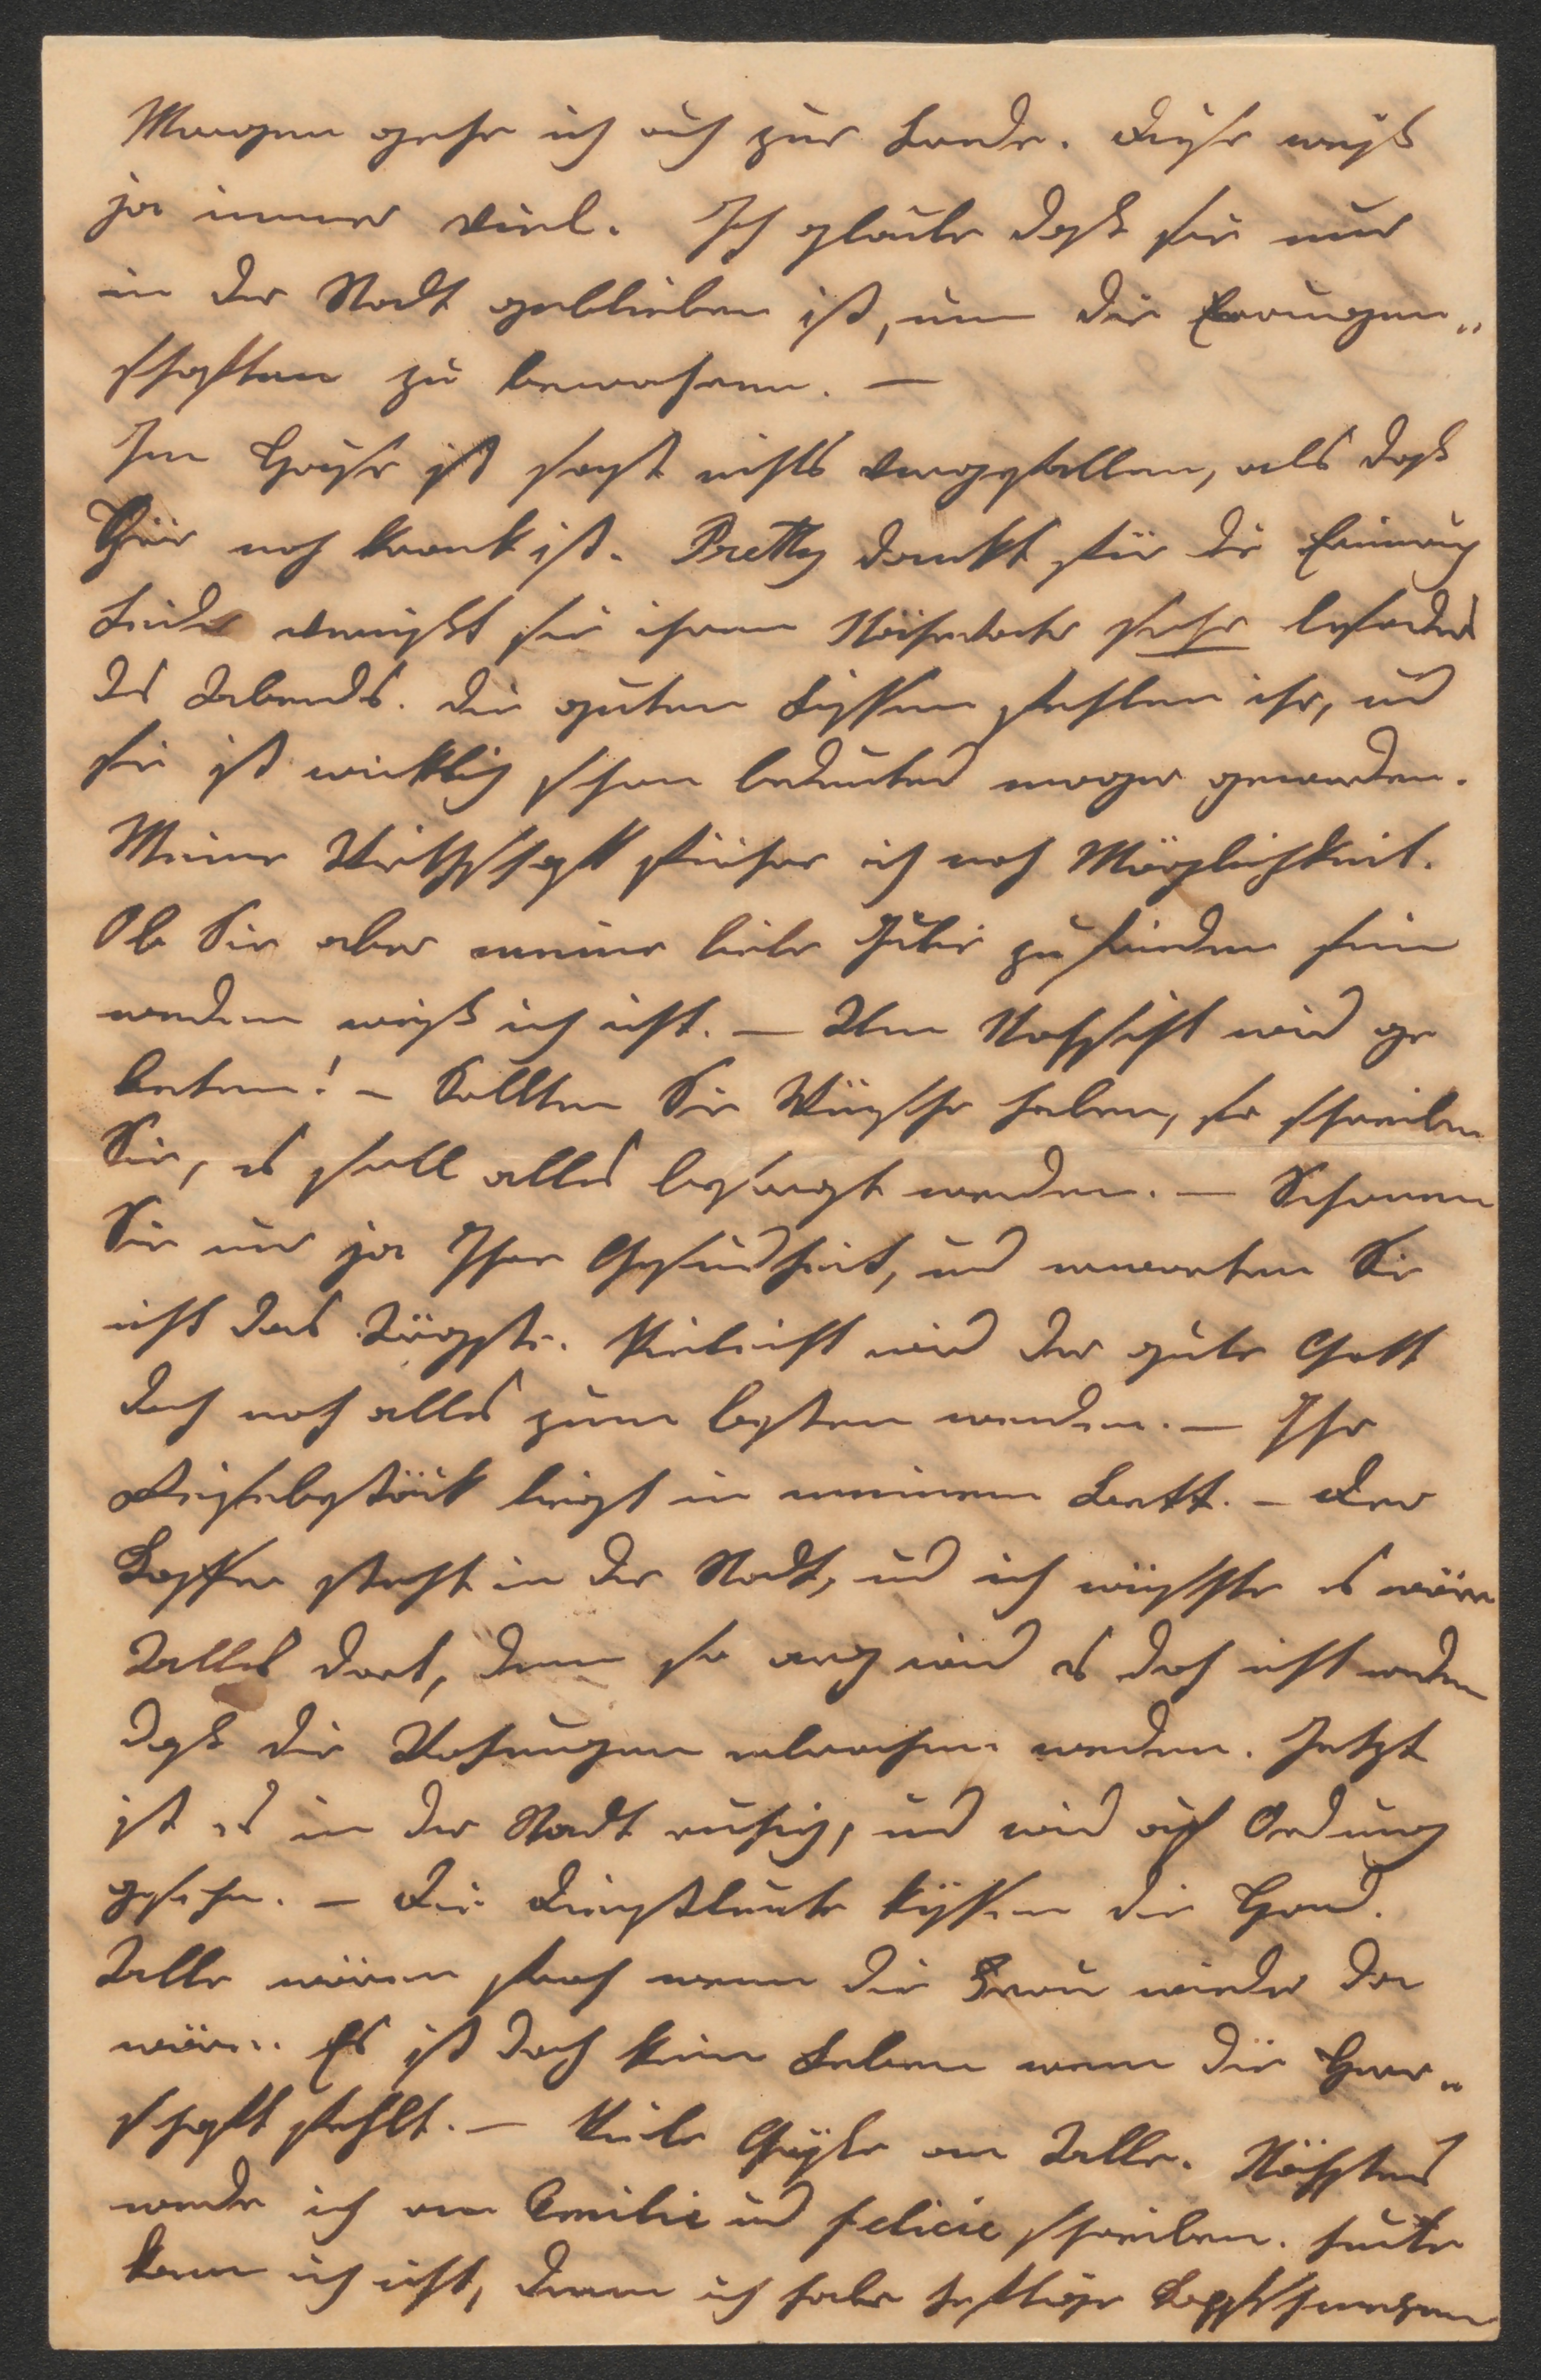 Morgen gehe ich auch zur Lande. Diese weiß
ja immer viel. Ich glaube daß sie nur
in der Stadt geblieben ist, um die Errungen„
schaften zu bewahren. —
Im Hause ist sonst nichts vorgefallen, als daß
noch krank ist. Pretty dankt für die
Leider vermißt sie ihren sehr besonders
des Abends. Die guten Bissen fehlen ihr, und
sie ist wirklich schon bedeutend mager geworden.
Meine Wirthschaft führe ich nach Möglichkeit.
Ob Sie aber meine liebe Julie zufrieden sein
werden weiß ich nicht. — Um Nachsicht wird ge
beten! – Sollten Sie Wünsche haben, so schreiben
Sie, es soll alles besorgt werden. — Schonen
Sie nur ja Ihre Gesundheit, und erwarten Sie
nicht das Ärgste. Vieleicht wird der gute Gott
doch noch alles zum besten wenden. — Ihr
liegt in meinem Bett. – Der
Koffer steht in der Stadt, und ich wünschte es wäre
Alles dort, denn so arg wird es doch nicht werden
daß die Wohnungen erbrochen werden. Jetzt
ist es in der Stadt ruhig, und wird auf Ordnung
gesehen. – Die Dienstleute küssen die Hand.
Alle wären froh wenn die Frau wieder da
wäre. Es ist doch kein Leben wenn die Herr„
schaft fehlt. — Viele Grüße an Alle. Nächstens
werde ich an Emilie und Felicie schreiben. heute
kann ich nicht, denn ich habe heftige Kopfschmerzen